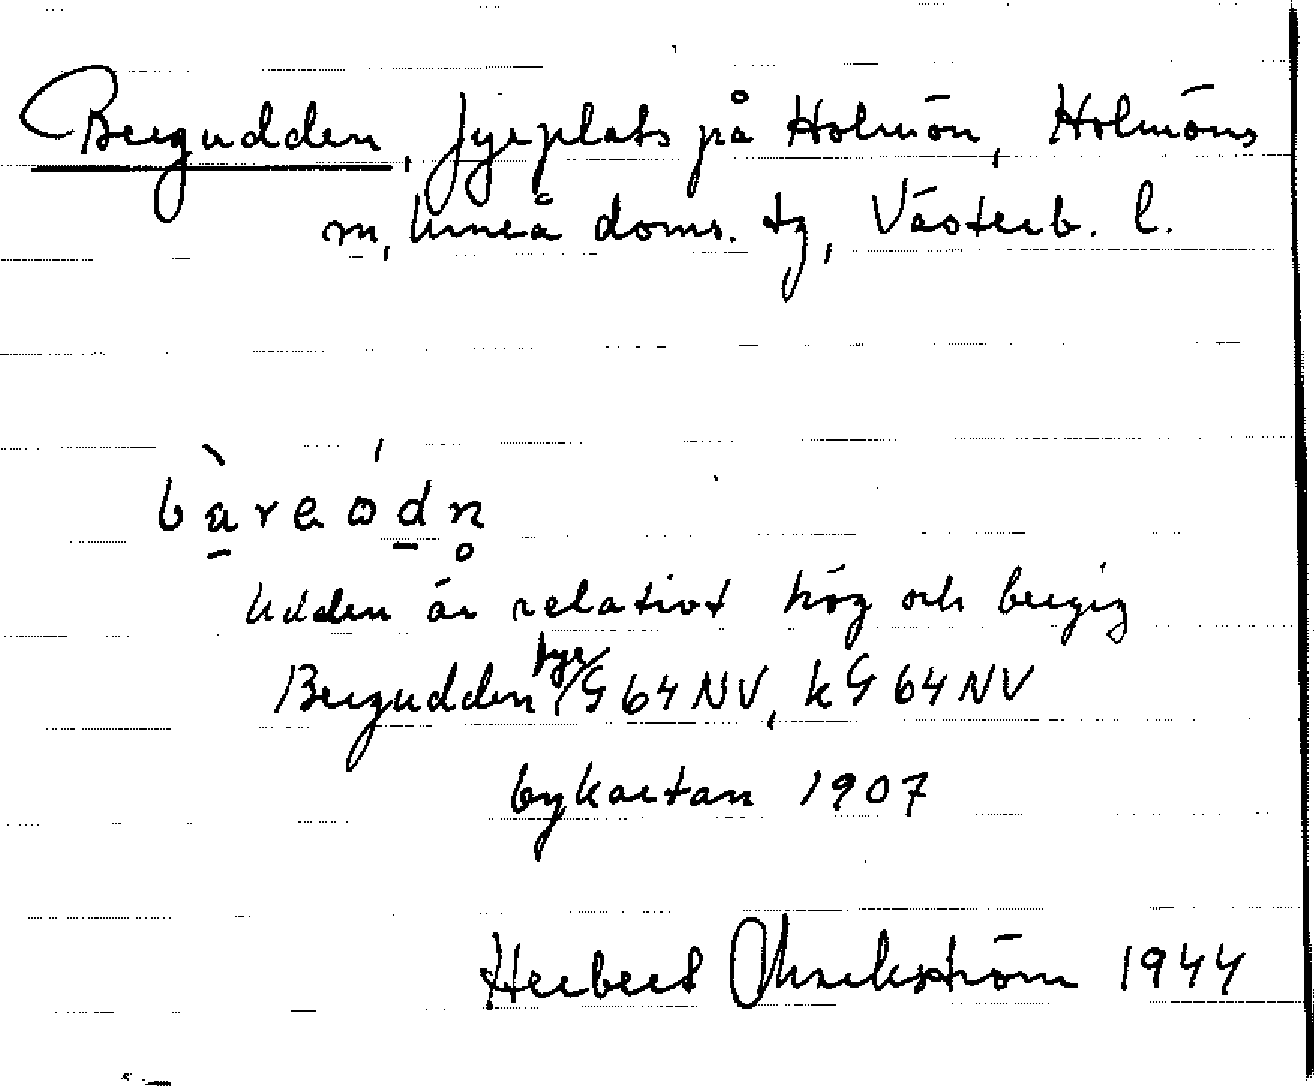 Bergudden, fyrplats på Holmön, Holmöns
m, Umeå doms. tg, Västerb. l.
Udden är relativt hög och bergig
Bergudden fyr/G 64 NV, k G 64 NV
bykartan 1907
Herbert 1944